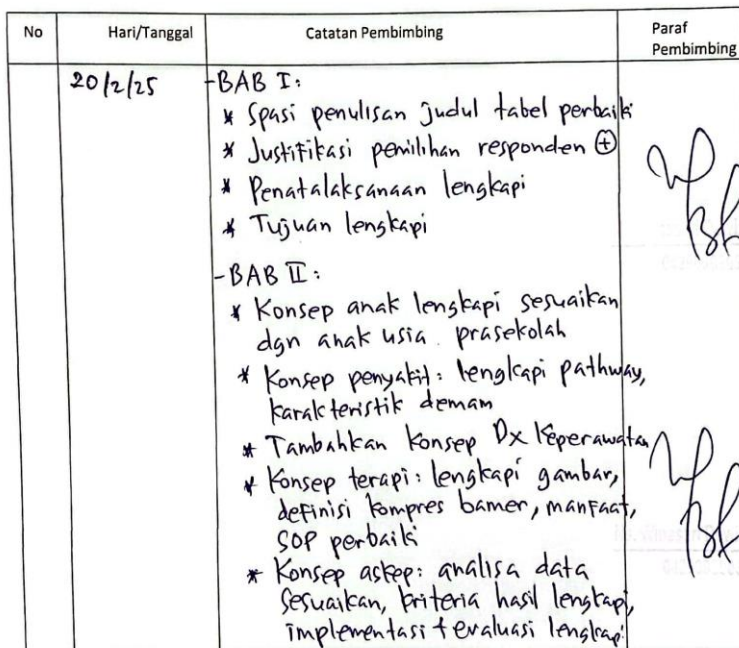 No Hari/Tanggal Catatan Pembimbing Paraf
Pembimbing
20/2/25 -BAB I:
* Spasi penulisan judul tabel perbaiki
* Justifikasi pemilihan responden ⊕
* Penatalaksanaan lengkapi
* Tujuan lengkapi
-BAB II:
* Konsep anak lengkapi sesuaikan
dgn anak usia prasekolah
* Konsep penyakit: lengkapi pathway,
karakteristik demam
* Tambahkan konsep Dx Keperawatan
* Konsep terapi: lengkapi gambar,
definisi kompres bamer, manfaat,
SOP perbaiki
* Konsep askep: analisa data
sesuaikan, kriteria hasil lengkapi,
implementasi + evaluasi lengkapi